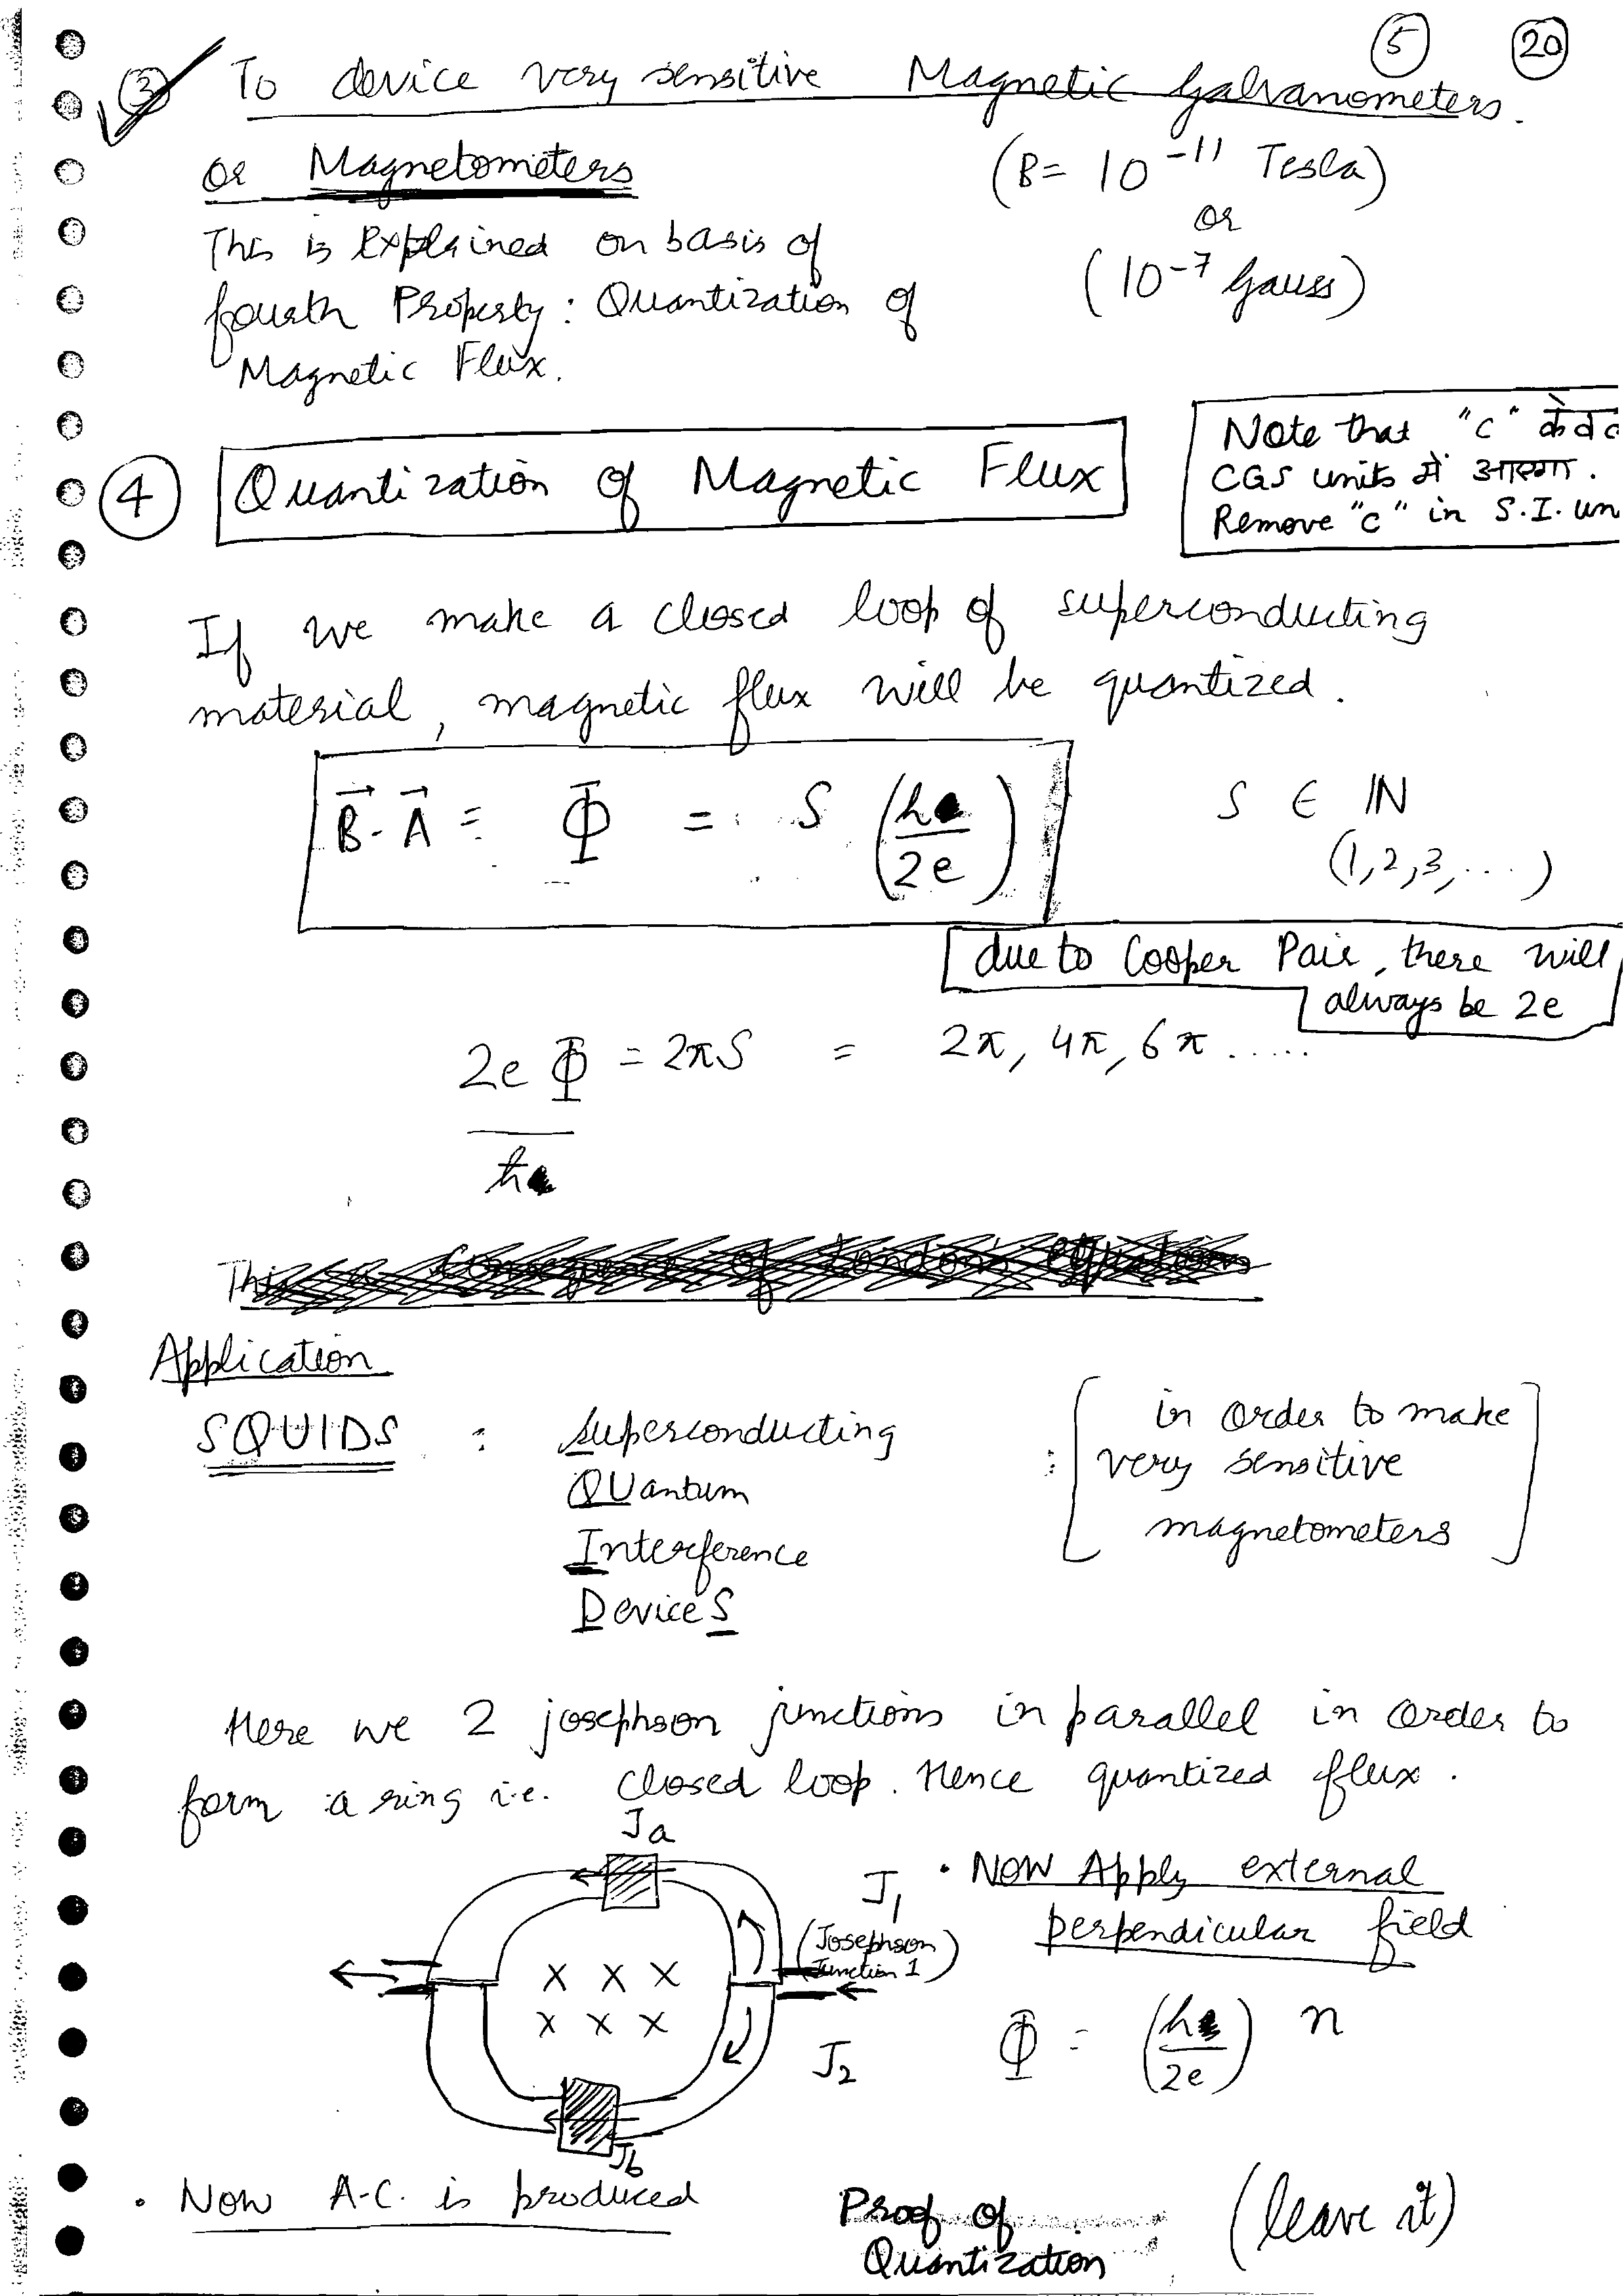 5 20
3 To device very sensitive Magnetic Galvanometers.
or Magnetometers (B = 10⁻¹¹ Tesla)
or
This is explained on basis of (10⁻⁷ Gauss)
fourth Property : Quantization of
Magnetic Flux.
Note that "c" केवल
CGS units में आएगा.
Remove "c" in S.I. un
4 Quantization of Magnetic Flux
If we make a closed loop of superconducting
material, magnetic flux will be quantized.
B⃗ · A⃗ = Φ = S (h/2e) S ∈ ℕ
(1, 2, 3, ....)
due to Cooper Pair, there will
always be 2e
2e Φ / ħ = 2πS = 2π, 4π, 6π .....
Application
SQUIDS : Superconducting
QUantum
Interference
DeviceS
: [in order to make
very sensitive
magnetometers]
Here we 2 josephson junctions in parallel in order to
form a ring i.e. closed loop. Hence quantized flux.
Ja
J₁
(Josephson
Junction 1)
X X X
X X X
J₂
Jb
• Now Apply external
perpendicular field
Φ = (h/2e) n
• Now A.C. is produced
Proof of
Quantization (leave it)